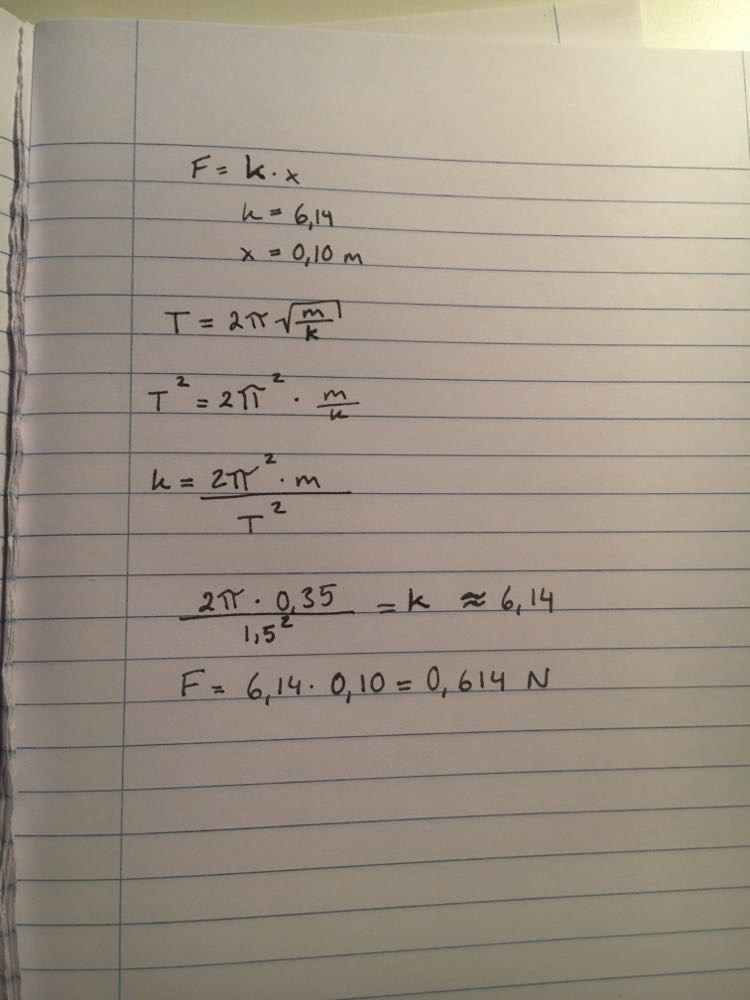 F = k · x
k = 6,14
x = 0,10 m
T = 2π √(m/k)
T² = 2π² · m/k
k = 2π² · m / T²
2π · 0,35 / 1,5² = k ≈ 6,14
F = 6,14 · 0,10 = 0,614 N